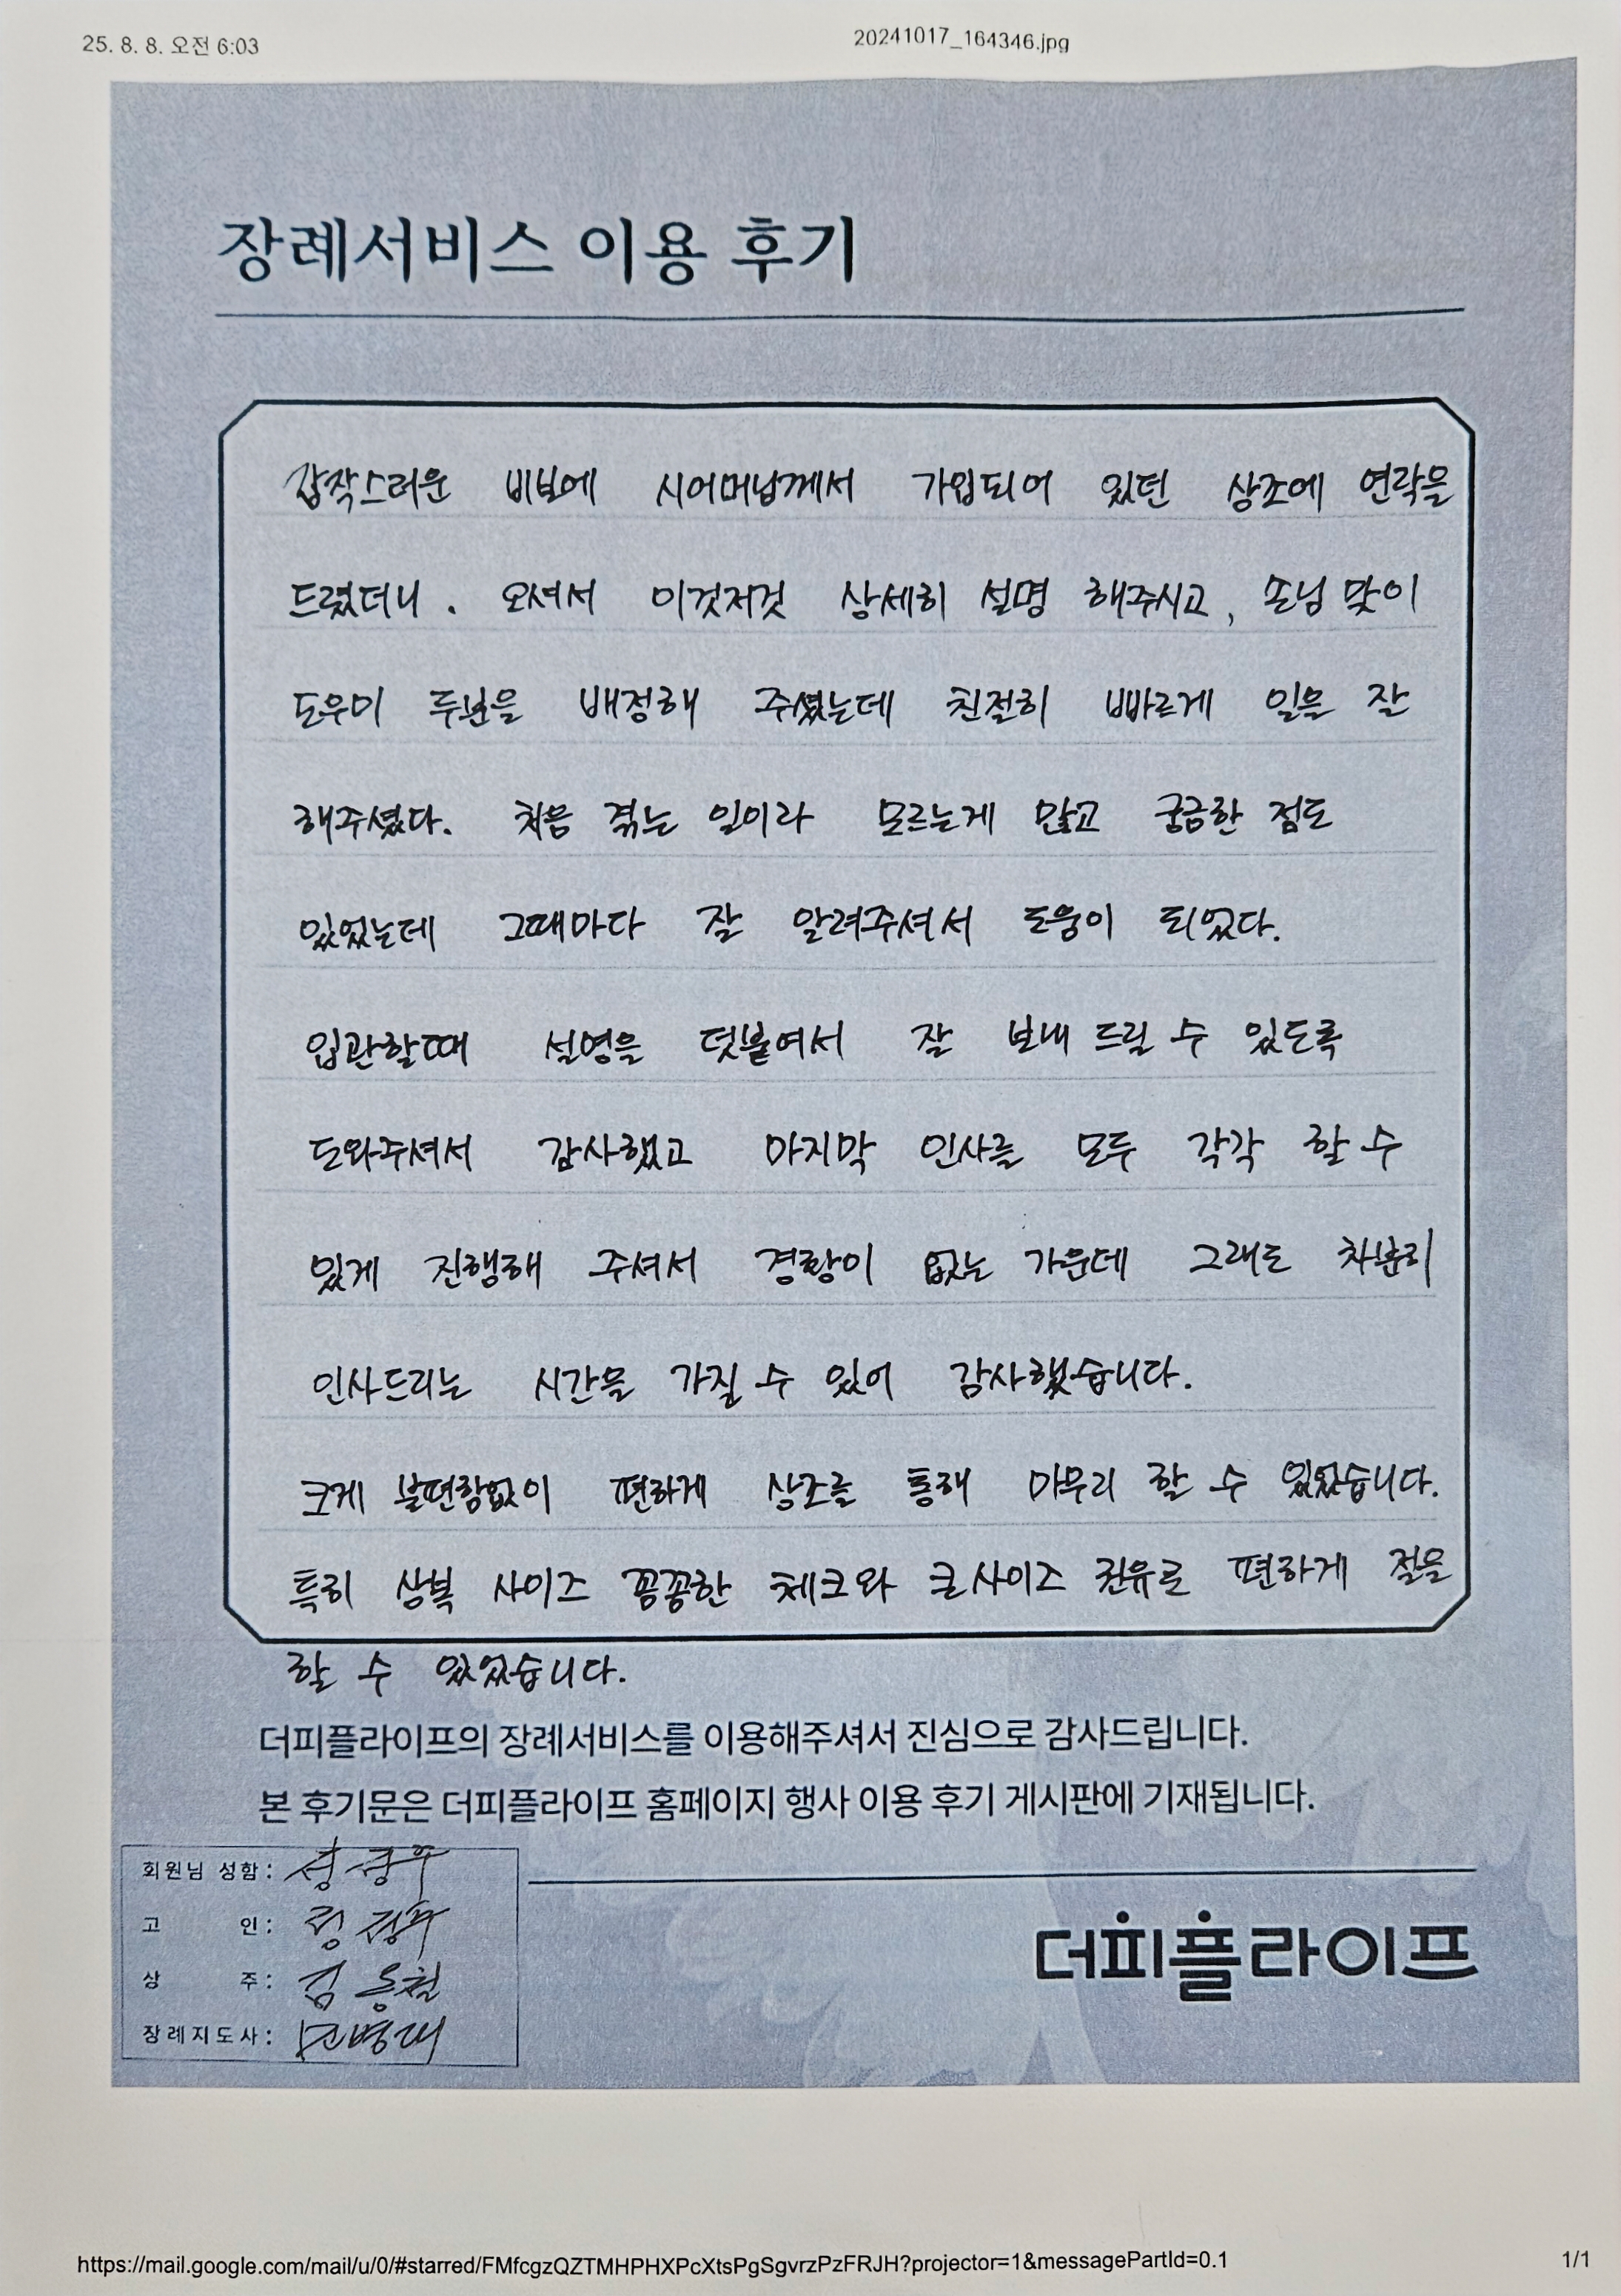 25. 8. 8. 오전 6:03
20241017_164346.jpg
장례서비스 이용 후기
갑작스러운 비보에 시어머님께서 가입되어 있던 상조에 연락을
드렸더니. 오셔서 이것저것 상세히 설명 해주시고, 손님 맞이
도우미 두분을 배정해 주셨는데 친절히 빠르게 일을 잘
해주셨다. 처음 겪는 일이라 모르는게 많고 궁금한 점도
있었는데 그때마다 잘 알려주셔서 도움이 되었다.
입관할때 설명을 덧붙여서 잘 보내 드릴 수 있도록
도와주셔서 감사했고 마지막 인사를 모두 각각 할 수
있게 진행해 주셔서 경황이 없는 가운데 그래도 차분히
인사드리는 시간을 가질 수 있어 감사했습니다.
크게 불편함없이 편하게 상조를 통해 마무리 할 수 있었습니다.
특히 상복 사이즈 꼼꼼한 체크와 큰사이즈 권유로 편하게 절을
할 수 있었습니다.
더피플라이프의 장례서비스를 이용해주셔서 진심으로 감사드립니다.
본 후기문은 더피플라이프 홈페이지 행사 이용 후기 게시판에 기재됩니다.
회원님 성함:
고 인:
상 주: 김
장례지도사:
더피플라이프
https://mail.google.com/mail/u/0/#starred/FMfcgzQZTMHPHXPcXtsPgSgvrzPzFRJH?projector=1&messagePartId=0.1
1/1